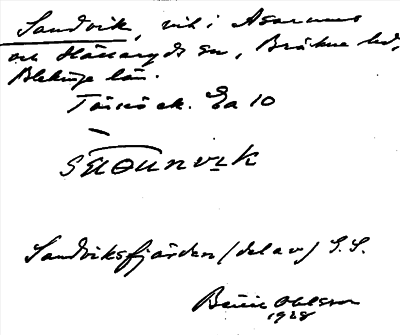 Sandvik, vik i Asarums
och Hällaryds sn, Bräkne hd,
Blekinge län.
Törnö ek. Ea 10
Sandviksfjärden (del av) G.S.
Ohlsson
1928